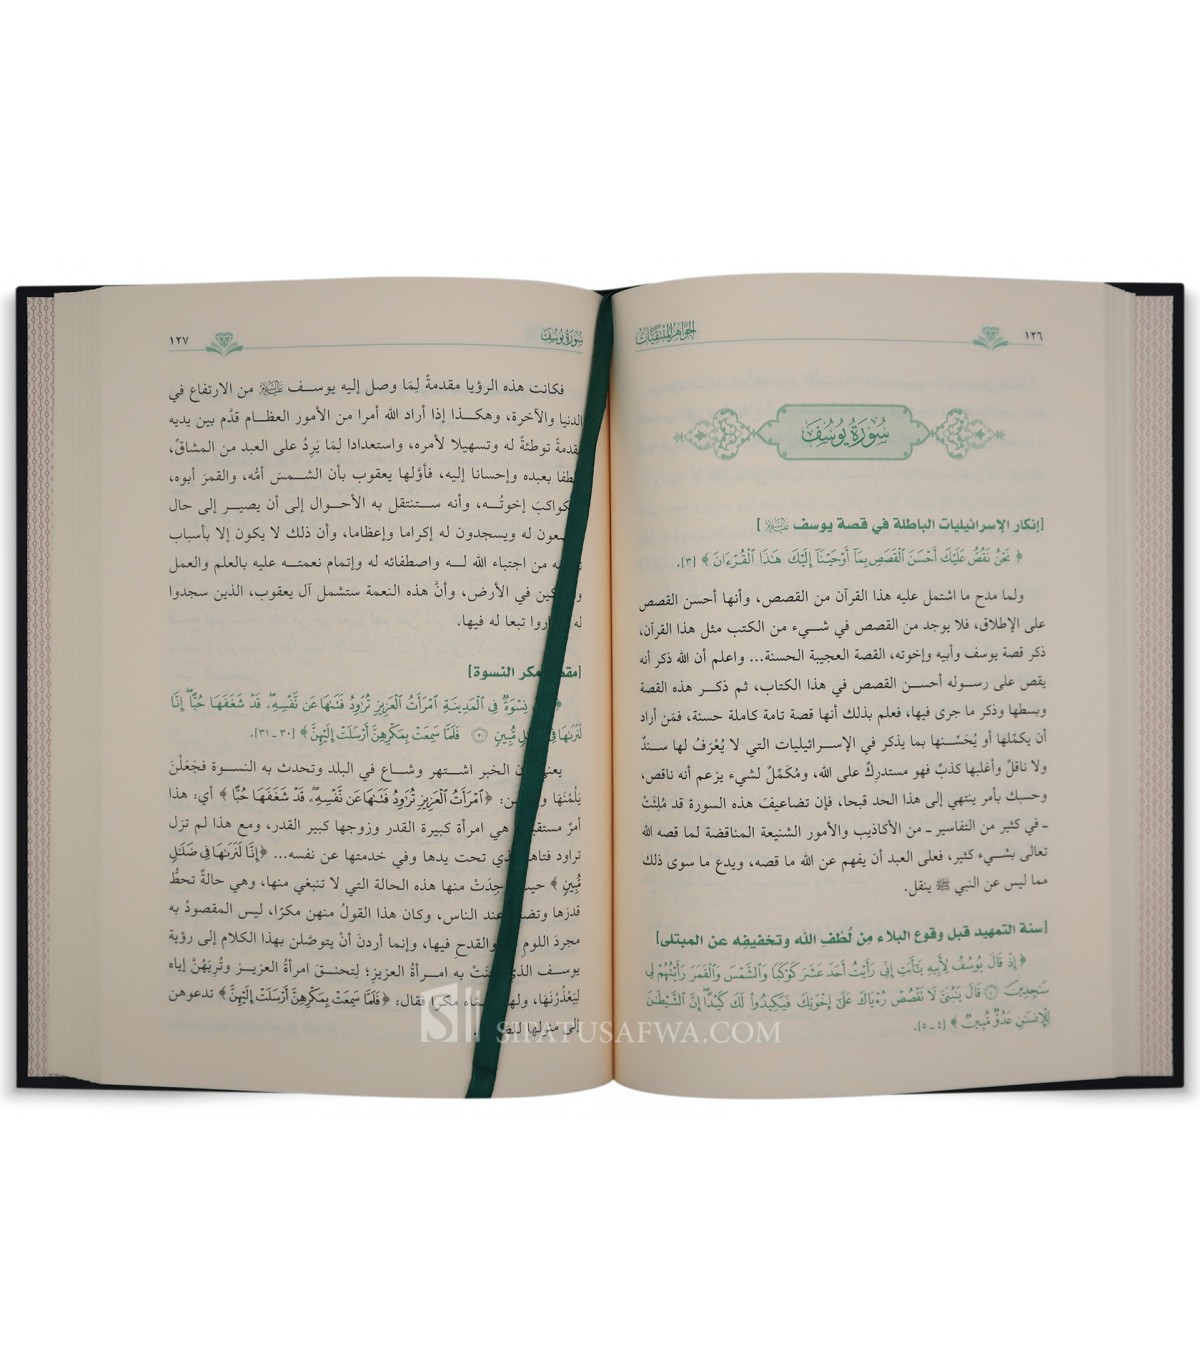 ١٢٦
الجواهر المنتقيات
سُورَةُ يُوسُفَ
[إنكار الإسرائيليات الباطلة في قصة يوسف عليه السلام]
﴿ نَحۡنُ نَقُصُّ عَلَيۡكَ أَحۡسَنَ ٱلۡقَصَصِ بِمَآ أَوۡحَيۡنَآ إِلَيۡكَ هَٰذَا ٱلۡقُرۡءَانَ ﴾ [٣].
ولما مدح ما اشتمل عليه هذا القرآن من القصص، وأنها أحسن القصص
على الإطلاق، فلا يوجد من القصص في شيء من الكتب مثل هذا القرآن،
ذكر قصة يوسف وأبيه وإخوته، القصة العجيبة الحسنة... واعلم أن الله ذكر أنه
يقص على رسوله أحسن القصص في هذا الكتاب، ثم ذكر هذه القصة
وبسطها وذكر ما جرى فيها، فعلم بذلك أنها قصة تامة كاملة حسنة، فمَن أراد
أن يكمِّلها أو يُحَسِّنها بما يذكر في الإسرائيليات التي لا يُعْرَفُ لها سندٌ
ولا ناقلٌ وأغلبها كذبٌ فهو مستدرِكٌ على الله، ومُكَمِّلٌ لشيء يزعم أنه ناقص،
وحسبك بأمر ينتهي إلى هذا الحد قبحا، فإن تضاعيفَ هذه السورة قد مُلِئَتْ
ـ في كثير من التفاسير ـ من الأكاذيب والأمور الشنيعة المناقضة لما قصه الله
تعالى بشيء كثير، فعلى العبد أن يفهم عن الله ما قصه، ويدع ما سوى ذلك
مما ليس عن النبي ﷺ ينقل.
[سنة التمهيد قبل وقوع البلاء مِن لُطْفِ الله وتخفيفِه عن المبتلى]
﴿ إِذۡ قَالَ يُوسُفُ لِأَبِيهِ يَٰٓأَبَتِ إِنِّي رَأَيۡتُ أَحَدَ عَشَرَ كَوۡكَبٗا وَٱلشَّمۡسَ وَٱلۡقَمَرَ رَأَيۡتُهُمۡ لِي
سَٰجِدِينَ ٤ قَالَ يَٰبُنَيَّ لَا تَقۡصُصۡ رُءۡيَاكَ عَلَىٰٓ إِخۡوَتِكَ فَيَكِيدُواْ لَكَ كَيۡدًاۖ إِنَّ ٱلشَّيۡطَٰنَ
لِلۡإِنسَٰنِ عَدُوّٞ مُّبِينٞ ﴾ [٤ ـ ٥].
سُورَةُ يُوسُفَ
١٢٧
فكانت هذه الرؤيا مقدمةً لِمَا وصل إليه يوسف عليه السلام من الارتفاع في
الدنيا والآخرة، وهكذا إذا أراد الله أمرا من الأمور العظام قدَّم بين يديه
مقدمةً توطئةً له وتسهيلا لأمره، واستعدادا لِمَا يَرِدُ على العبد من المشاقِّ،
بعبده وإحسانا إليه، فأوَّلها يعقوب بأن الشمسَ أمُّه، والقمرَ أبوه،
والكواكبَ إخوتُه، وأنه ستنتقل به الأحوال إلى أن يصير إلى حال
له ويسجدون له إكراما وإعظاما، وأن ذلك لا يكون إلا بأسباب
من اجتباء الله له واصطفائه له وإتمام نعمته عليه بالعلم والعمل
في الأرض، وأنَّ هذه النعمة ستشمل آل يعقوب، الذين سجدوا
له تبعا له فيها.
مكر النسوة]
﴿ نِسۡوَةٞ فِي ٱلۡمَدِينَةِ ٱمۡرَأَتُ ٱلۡعَزِيزِ تُرَٰوِدُ فَتَىٰهَا عَن نَّفۡسِهِۦۖ قَدۡ شَغَفَهَا حُبًّاۖ إِنَّا
لَنَرَىٰهَا مُّبِينٖ ٣٠ فَلَمَّا سَمِعَتۡ بِمَكۡرِهِنَّ أَرۡسَلَتۡ إِلَيۡهِنَّ ﴾ [٣٠ ـ ٣١].
يعني الخبر اشتهر وشاع في البلد وتحدث به النسوة فجَعَلْنَ
يَلُمْنَهَا ﴿ٱمۡرَأَتُ ٱلۡعَزِيزِ تُرَٰوِدُ فَتَىٰهَا عَن نَّفۡسِهِۦۖ قَدۡ شَغَفَهَا حُبًّا﴾ أي: هذا
أمرٌ هي امرأة كبيرة القدر وزوجها كبير القدر، ومع هذا لم تزل
تراود فتاها تحت يدها وفي خدمتها عن نفسه... ﴿إِنَّا لَنَرَىٰهَا فِي ضَلَٰلٖ
مُّبِينٖ﴾ منها هذه الحالة التي لا تنبغي منها، وهي حالةٌ تحطُّ
قدرَها عند الناس، وكان هذا القولُ منهن مكرًا، ليس المقصودُ به
مجردَ اللومِ والقدحِ فيها، وإنما أردنَ أنْ يتوصَّلن بهذا الكلام إلى رؤية
يوسف الذي به امرأةُ العزيزِ؛ لِتحنقَ امرأةُ العزيز وتُرِيَهُنَّ إياه
لِيَعْذُرْنَهَا، مكرًا فقال: ﴿فَلَمَّا سَمِعَتۡ بِمَكۡرِهِنَّ أَرۡسَلَتۡ إِلَيۡهِنَّ﴾ تدعوهن
إلى منزلها
SIFATUSAFWA.COM